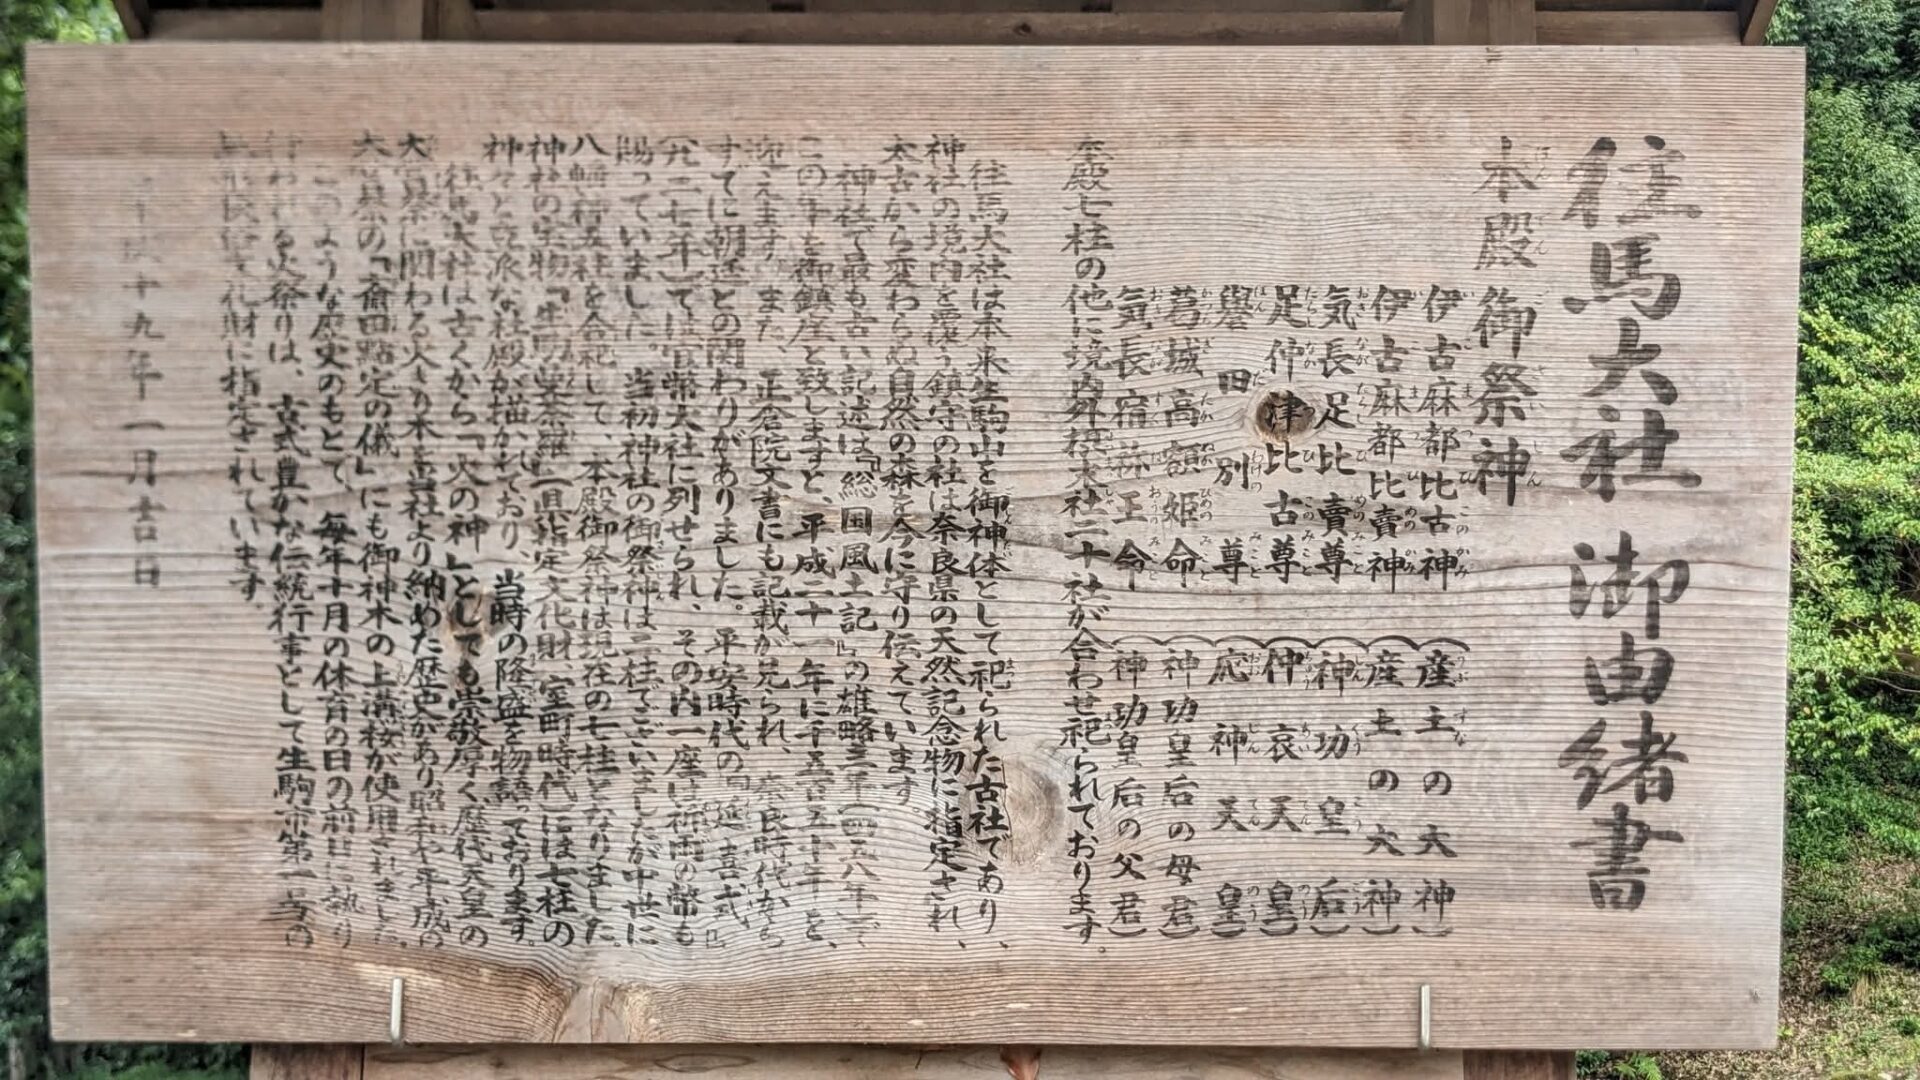 往馬大社 御由緒書
本殿 御祭神
伊古麻都比古神（産土の大神）
伊古麻都比賣神（産土の大神）
気長足比賣尊（神功皇后）
足仲津比古尊（仲哀天皇）
譽田別尊（応神天皇）
葛城高額姫命（神功皇后の母君）
気長宿祢王命（神功皇后の父君）
本殿七柱の他に境内外摂末社二十社が合わせ祀られております。
往馬大社は本来生駒山を御神体として祀られた古社であり、
神社の境内を覆う鎮守の社は奈良県の天然記念物に指定され、
太古から変わらぬ自然の森を今に守り伝えています
神社で最も古い記述は『総国風土記』の雄略三年（四五八年）で
この年を御鎮座と致しますと、平成二十一年に千五百五十年を、
迎えます。また、正倉院文書にも記載が見られ、奈良時代から
すでに朝廷との関わりがありました。平安時代の『延喜式』
（九二七年）では官幣大社に列せられ、その内一座は祈雨の幣も
賜っていました。当初神社の御祭神は二柱でございましたが中世に
八幡神五柱を合祀して、本殿御祭神は現在の七柱となりました。
神社の宝物「生駒曼荼羅」（県指定文化財、室町時代）には七柱の
神々と立派な社殿が描かれており、当時の隆盛を物語っております。
往馬大社は古くから「火の神」としても崇敬厚く、歴代天皇の
大嘗祭に関わる火きり木を当社より納めた歴史があり昭和や平成の
大嘗祭の「斎田點定の儀」にも御神木の上溝桜が使用されました。
このような歴史のもとで、毎年十月の体育の日の前日に執り
行われる火祭りは、古式豊かな伝統行事として生駒市第一号の
無形民俗文化財に指定されています。
平成十九年一月吉日